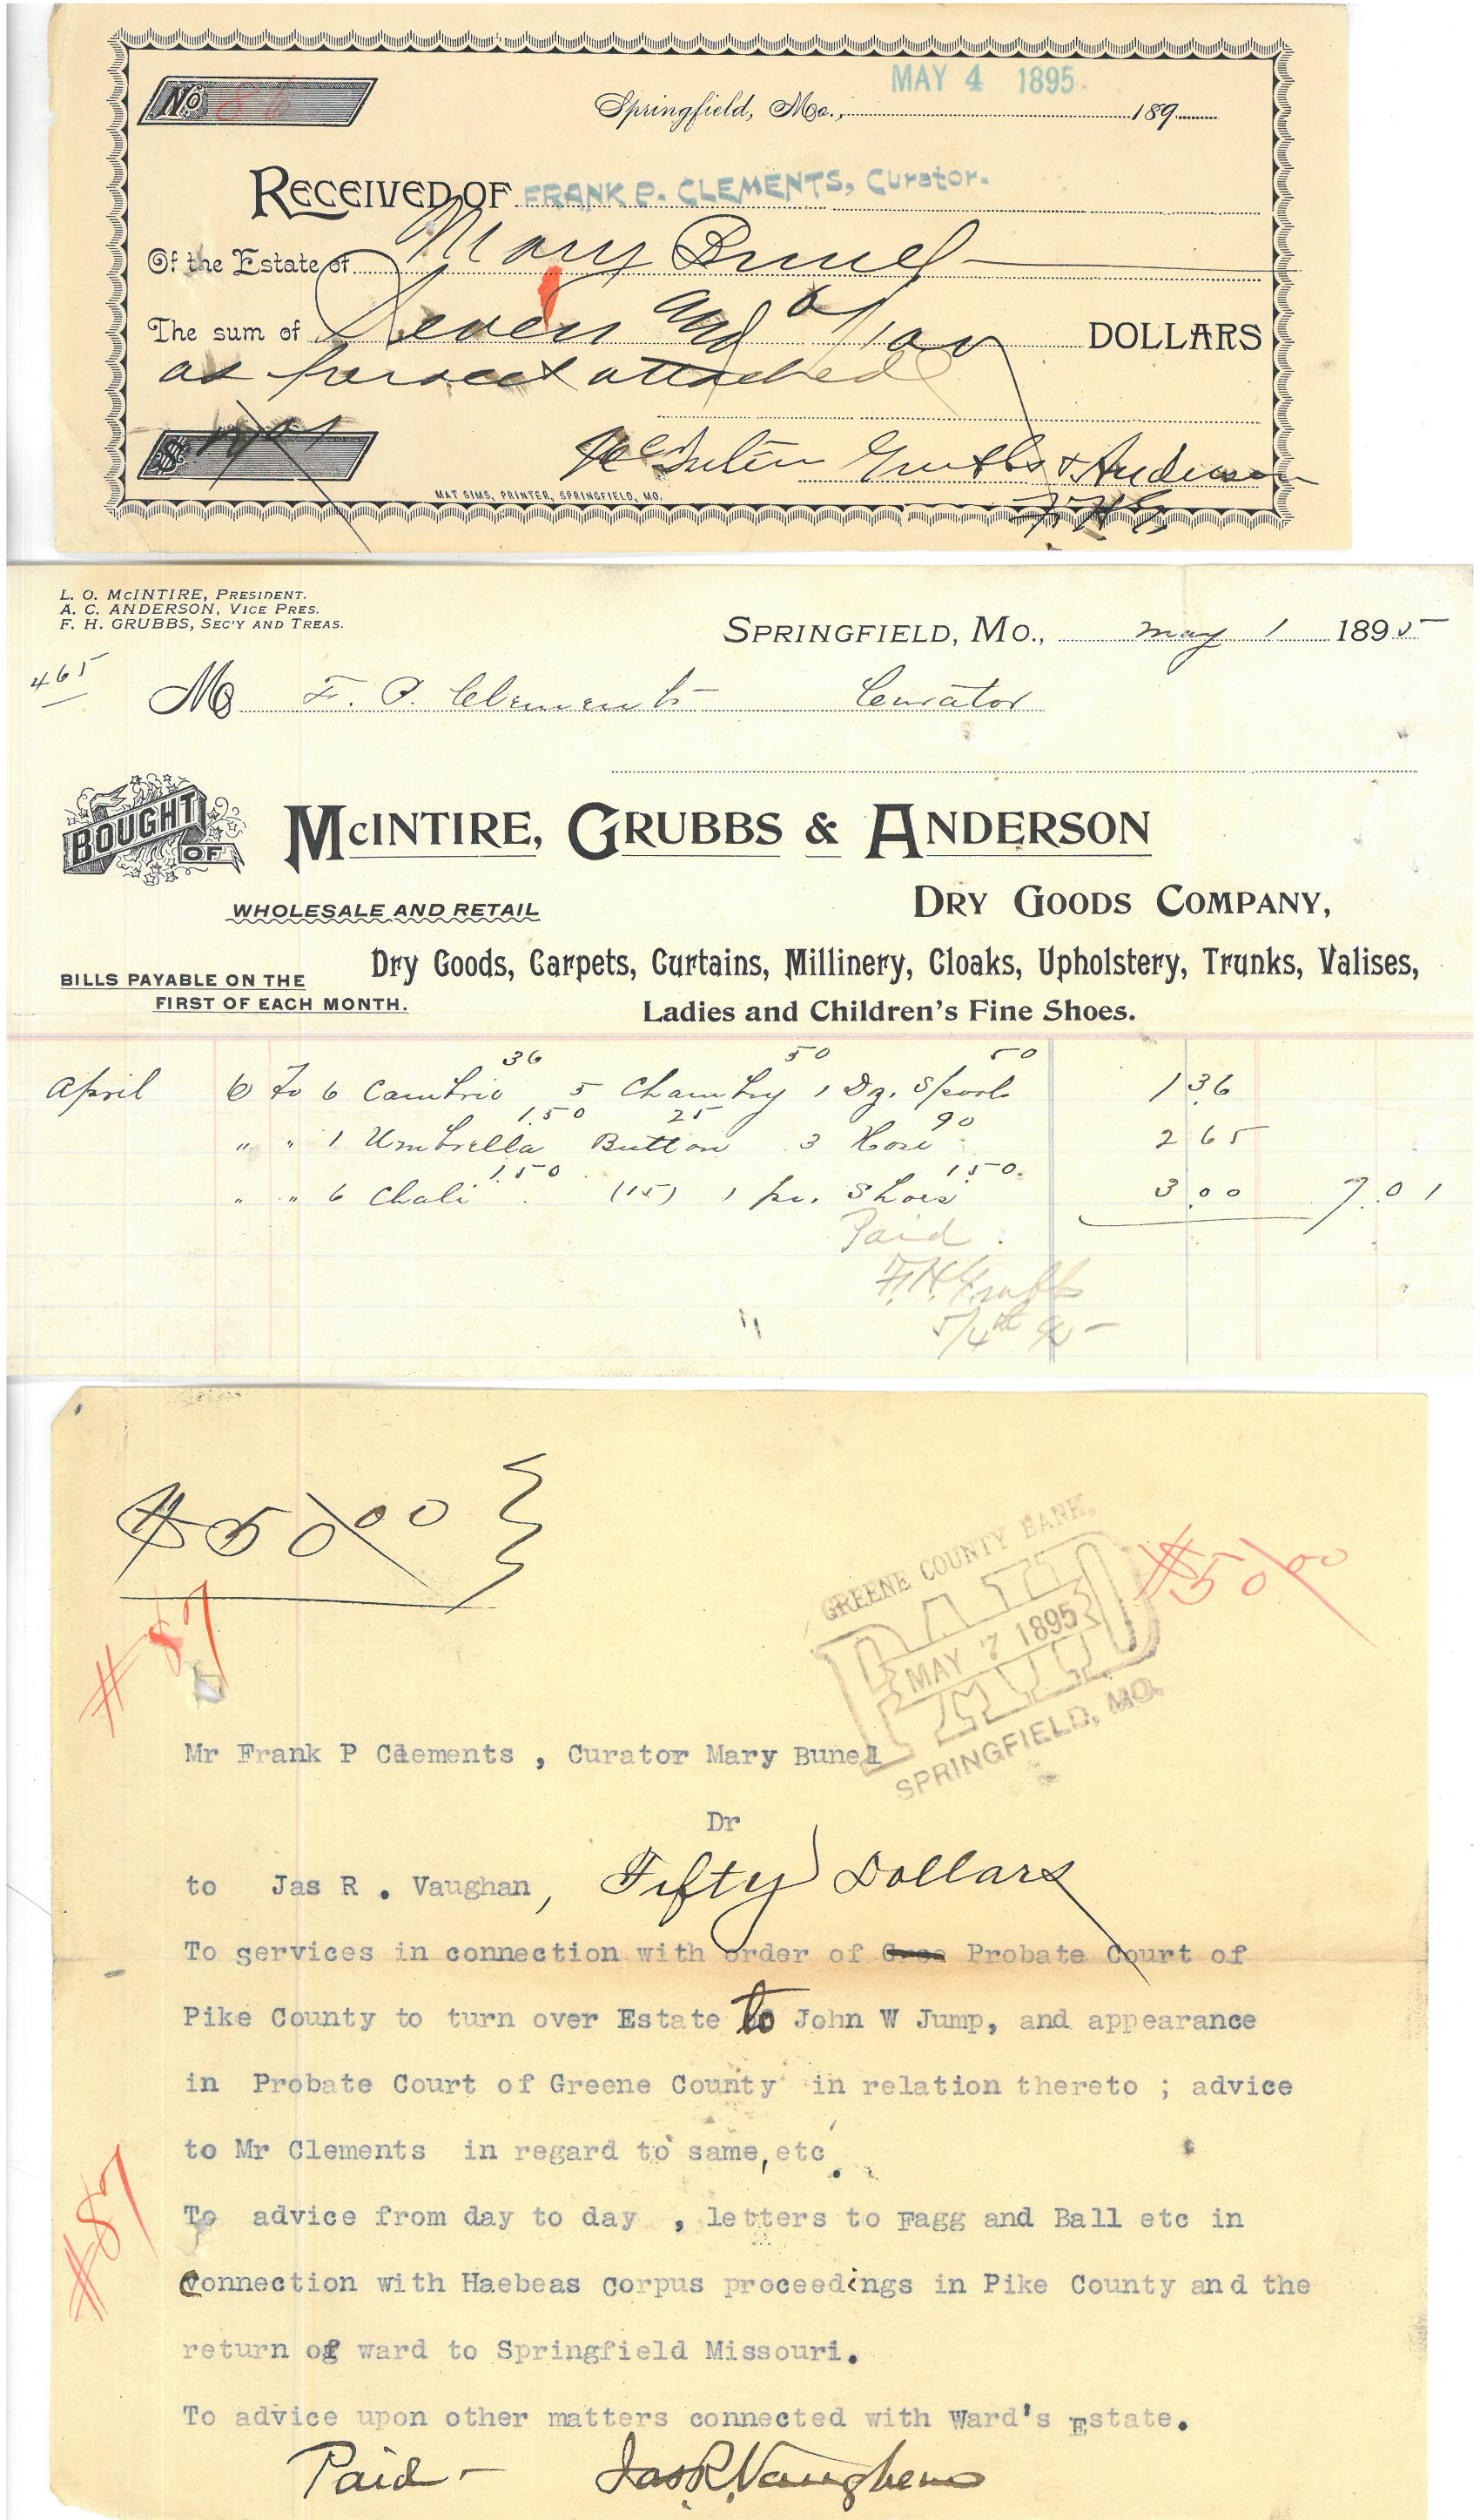 No 86
MAY 4 1895
Springfield, Mo., 189
RECEIVED OF FRANK P. CLEMENTS, Curator.
Of the Estate of Mary Bunel
The sum of Seven and 01/100 DOLLARS
as per acct attached
$ 7 01
McIntire Grubbs & Anderson
F. H. G.
MAT SIMS, PRINTER, SPRINGFIELD, MO.
L. O. McINTIRE, PRESIDENT.
A. C. ANDERSON, VICE PRES.
F. H. GRUBBS, SEC'Y AND TREAS.
SPRINGFIELD, MO., May 1 1895
465
M F. P. Clements Curator
BOUGHT OF
McINTIRE, GRUBBS & ANDERSON
WHOLESALE AND RETAIL
DRY GOODS COMPANY,
BILLS PAYABLE ON THE
FIRST OF EACH MONTH.
Dry Goods, Carpets, Curtains, Millinery, Cloaks, Upholstery, Trunks, Valises,
Ladies and Children's Fine Shoes.
36 50 50
April 6 To 6 Cambric 5 Chambry 1 Dz. Spools 1 36
1.50 25 90
" " 1 Umbrella Button 3 Hose 2 65
1.50 1.50
" " 6 Chali (15) 1 pr. Shoes 3.00 7.01
Paid
F. H. Grubbs
5/4th 95
$50 00
GREENE COUNTY BANK,
PAID
MAY 7 1895
SPRINGFIELD, MO.
$50 00
# 87
Mr Frank P Clements , Curator Mary Bunel
Dr
to Jas R . Vaughan, Fifty Dollars
To services in connection with order of Probate Court of
Pike County to turn over Estate to John W Jump, and appearance
in Probate Court of Greene County in relation thereto ; advice
to Mr Clements in regard to same, etc.
# 87
To advice from day to day , letters to Fagg and Ball etc in
Connection with Haebeas Corpus proceedings in Pike County and the
return of ward to Springfield Missouri.
To advice upon other matters connected with Ward's Estate.
Paid - Jas R. Vaughan